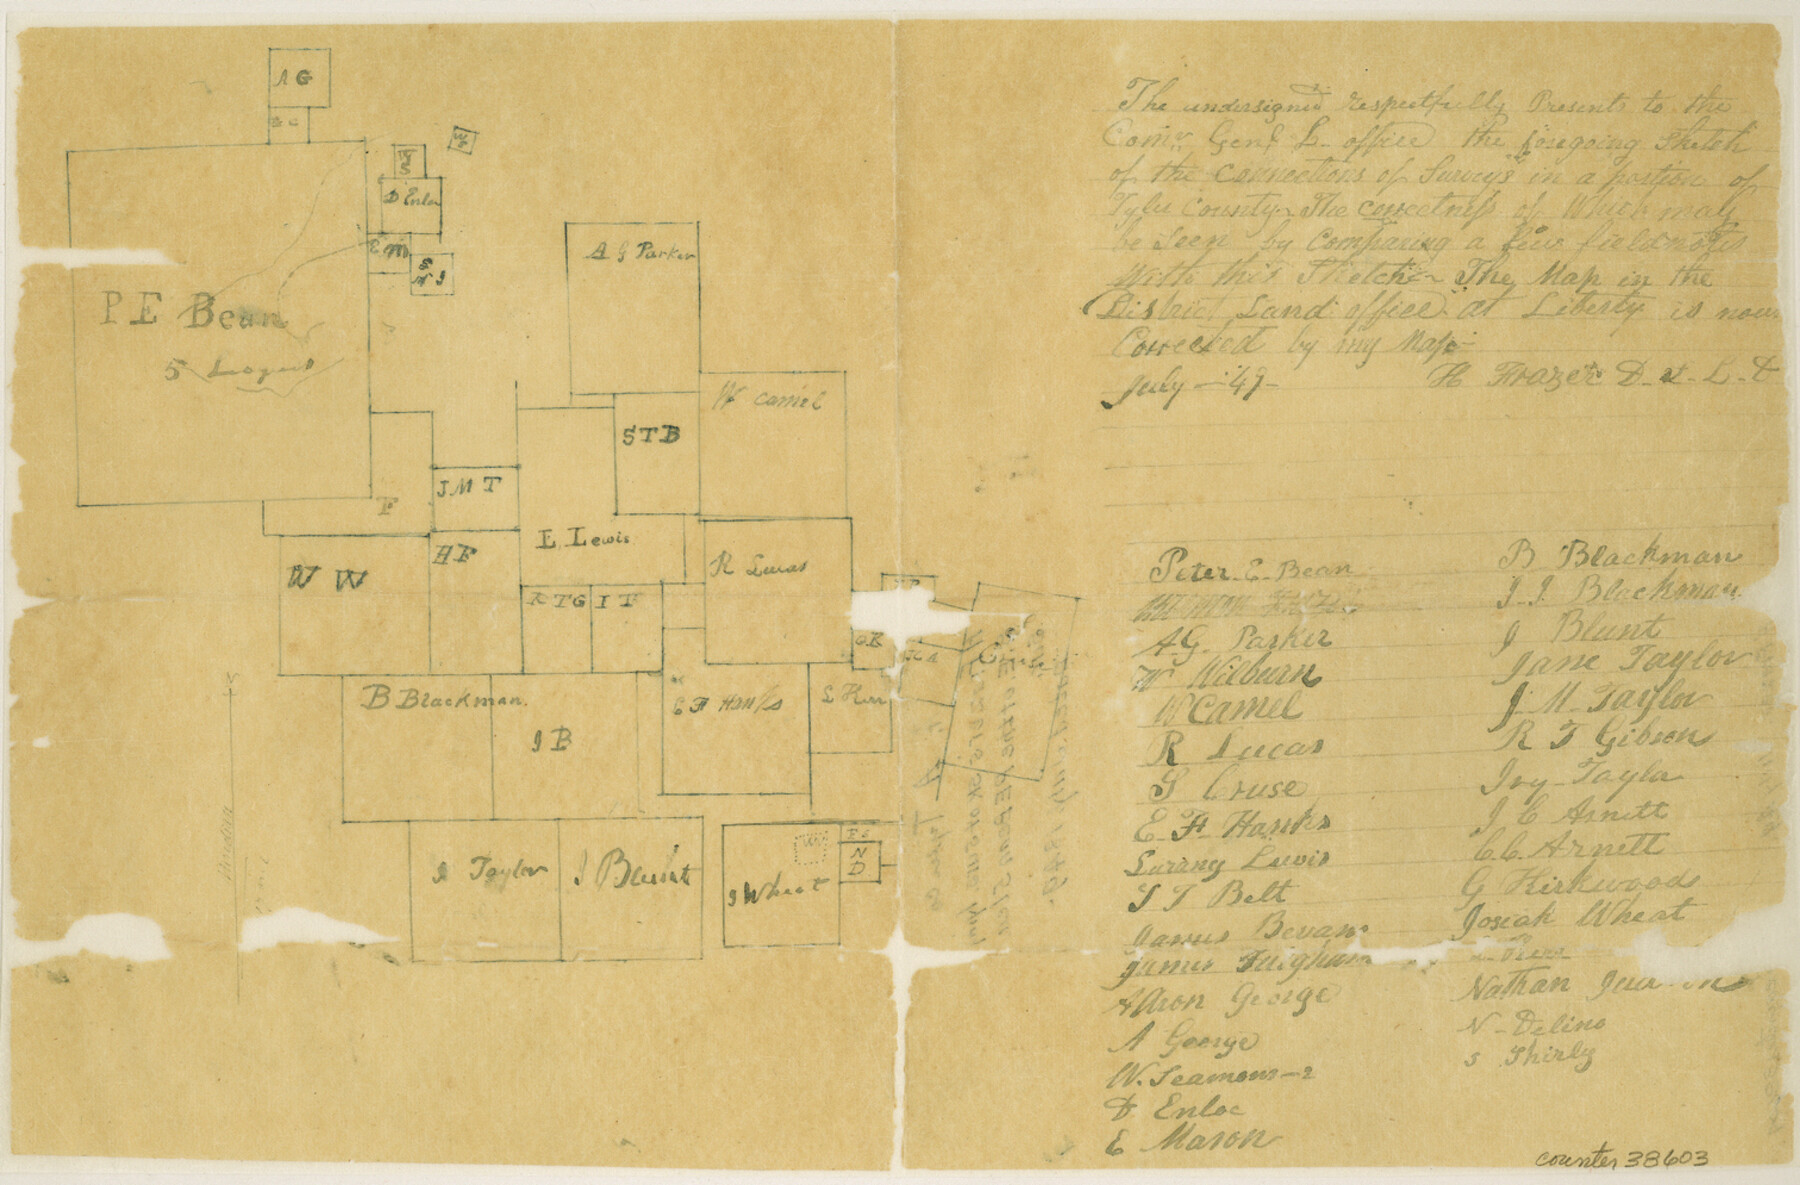 A G
P E Bean
5 Leagues
W
S
D Enloe
E M
A G Parker
W Camel
S T B
J M T
F
H F
W W
E Lewis
R Lucas
R T G
I T
B Blackman.
I B
E F Hanks
J Taylor
J Blunt
J Wheat
N
D
The undersigned respectfully Presents to the
Comr. Genl L- office the foregoing Sketch
of the Connections of Surveys in a portion of
Tyler County- The correctness of Which may
be Seen by Comparing a few fieldnotes
With this Sketch- The Map in the
District Land office at Liberty is now
Corrected by my Map-
July - 49- H Frazer D- - L- D
Peter- E- Bean
A G- Parker
W Wilburn
W Camel
R Lucas
S Cruse
E- F- Hanks
Lewis
S T Belt
James Bevans
James
Aaron George
A George
W. Seamons-2
D. Enloe
E Mason
B Blackman
J- J. Blackman
J Blunt
Jane Taylor
J- M- Taylor
R T Gibson
Ivy- Taylor
J C Arnett
C C- Arnett
G Kirkwoods
Josiah Wheat
Nathan
N- Delino
S Shirly
counter 38603